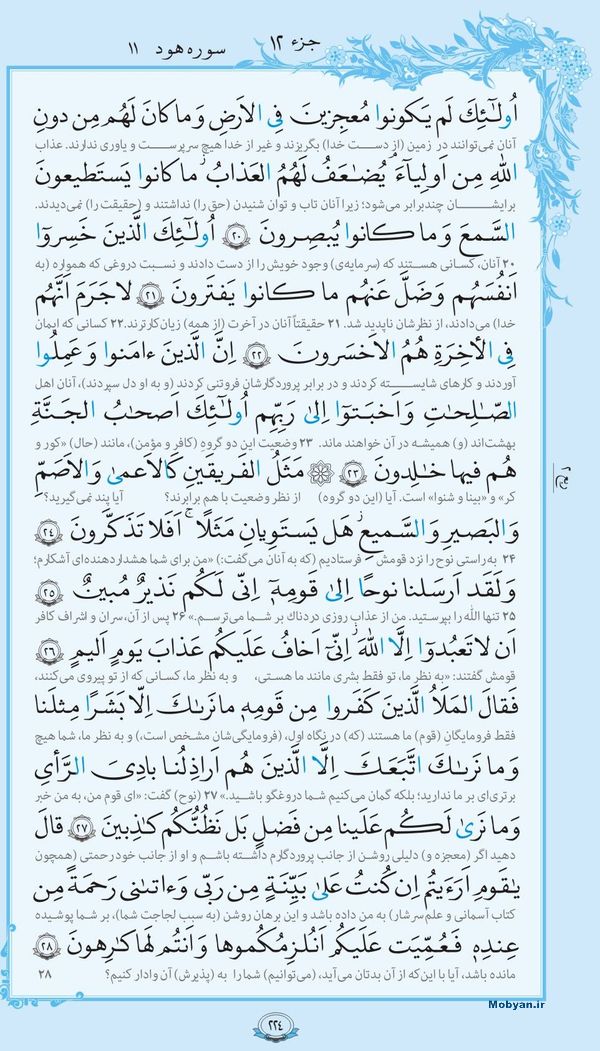 جزء ۱۲
سوره هود ۱۱
اُولـٰٓئِكَ لَم يَكونوا مُعجِزينَ فِى الاَرضِ وَ ما كانَ لَهُم مِن دونِ
آنان نمی‌توانند در زمین (از دست خدا) بگریزند و غیر از خدا هیچ سرپرست و یاوری ندارند. عذاب
اللهِ مِن اَولِياءَ ۘ يُضـٰعَفُ لَهُمُ العَذابُ ۚ ما كانوا يَستَطيعونَ
برایشان چندبرابر می‌شود؛ زیرا آنان تاب و توان شنیدن (حق را) نداشتند و (حقیقت را) نمی‌دیدند.
السَّمعَ وَ ما كانوا يُبصِرونَ ﴿۲۰﴾ اُولـٰٓئِكَ الَّذينَ خَسِروٓا
۲۰ آنان، کسانی هستند که (سرمایه‌ی) وجود خویش را از دست دادند و نسبت دروغی که همواره (به
اَنفُسَهُم وَ ضَلَّ عَنهُم ما كانوا يَفتَرونَ ﴿۲۱﴾ لا جَرَمَ اَنَّهُم
خدا) می‌دادند، از نظرشان ناپدید شد. ۲۱ حقیقتاً آنان در آخرت (از همه) زیان‌کارترند. ۲۲ کسانی که ایمان
فِى الأخِرَةِ هُمُ الاَخسَرونَ ﴿۲۲﴾ اِنَّ الَّذينَ ءامَنوا وَ عَمِلُوا
آوردند و کارهای شایسته کردند و در برابر پروردگارشان فروتنی کردند (و به او دل سپردند)، آنان اهل
الصّـٰلِحـٰتِ وَ اَخبَتوٓا اِلىٰ رَبِّهِم اُولـٰٓئِكَ اَصحـٰبُ الجَنَّةِ
بهشت‌اند (و) همیشه در آن خواهند ماند. ۲۳ وضعیت این دو گروه (کافر و مؤمن)، مانند (حال) «کور و
هُم فيها خـٰلِدونَ ﴿۲۳﴾ مَثَلُ الفَريقَينِ كَالاَعمىٰ وَ الاَصَمِّ
کر» و «بینا و شنوا» است. آیا (این دو گروه) از نظر وضعیت با هم برابرند؟ آیا پند نمی‌گیرید؟
وَ البَصيرِ وَ السَّميعِ ۚ هَل يَستَويانِ مَثَلًا ۚ اَفَلا تَذَكَّرونَ ﴿۲۴﴾
۲۴ به‌راستی نوح را نزد قومش فرستادیم (که به آنان می‌گفت:) «من برای شما هشداردهنده‌ای آشکارم؛
وَ لَقَد اَرسَلنا نوحًا اِلىٰ قَومِهٖٓ اِنّى لَكُم نَذيرٌ مُبينٌ ﴿۲۵﴾
۲۵ تنها الله را بپرستید. من از عذاب روزی دردناک بر شما می‌ترسم.» ۲۶ پس از آن، سران و اشراف کافر
اَن لا تَعبُدوٓا اِلَّا اللهَ ۖ اِنّىٓ اَخافُ عَلَيكُم عَذابَ يَومٍ اَليمٍ ﴿۲۶﴾
قومش گفتند: «به نظر ما، تو فقط بشری مانند ما هستی، و به نظر ما، کسانی که از تو پیروی می‌کنند،
فَقالَ المَلَاُ الَّذينَ كَفَروا مِن قَومِهٖ ما نَرىٰكَ اِلّا بَشَرًا مِثلَنا
فقط فرومایگان (قوم) ما هستند (که) در نگاه اول، (فرومایگی‌شان مشخص است،) و به نظر ما، شما هیچ
وَ ما نَرىٰكَ اتَّبَعَكَ اِلَّا الَّذينَ هُم اَراذِلُنا بادِىَ الرَّأىِ
برتری‌ای بر ما ندارید؛ بلکه گمان می‌کنیم شما دروغگو باشید.» ۲۷ (نوح) گفت: «ای قوم من، به من خبر
وَ ما نَرىٰ لَكُم عَلَينا مِن فَضلٍ بَل نَظُنُّكُم كـٰذِبينَ ﴿۲۷﴾ قالَ
دهید اگر (معجزه و) دلیلی روشن از جانب پروردگارم داشته باشم و او از جانب خود رحمتی (همچون
يـٰقَومِ اَرَءَيتُم اِن كُنتُ عَلىٰ بَيِّنَةٍ مِن رَبّى وَ ءاتىٰنى رَحمَةً مِن
کتاب آسمانی و علم سرشار) به من داده باشد و این برهان روشن (به سبب لجاجت شما)، بر شما پوشیده
عِندِهٖ فَعُمِّيَت عَلَيكُم اَنُلزِمُكُموها وَ اَنتُم لَها كـٰرِهونَ ﴿۲۸﴾
مانده باشد، آیا با این‌که از آن بدتان می‌آید، (می‌توانیم) شما را به (پذیرش) آن وادار کنیم؟ ۲۸
Mobyan.ir
۲۲۴